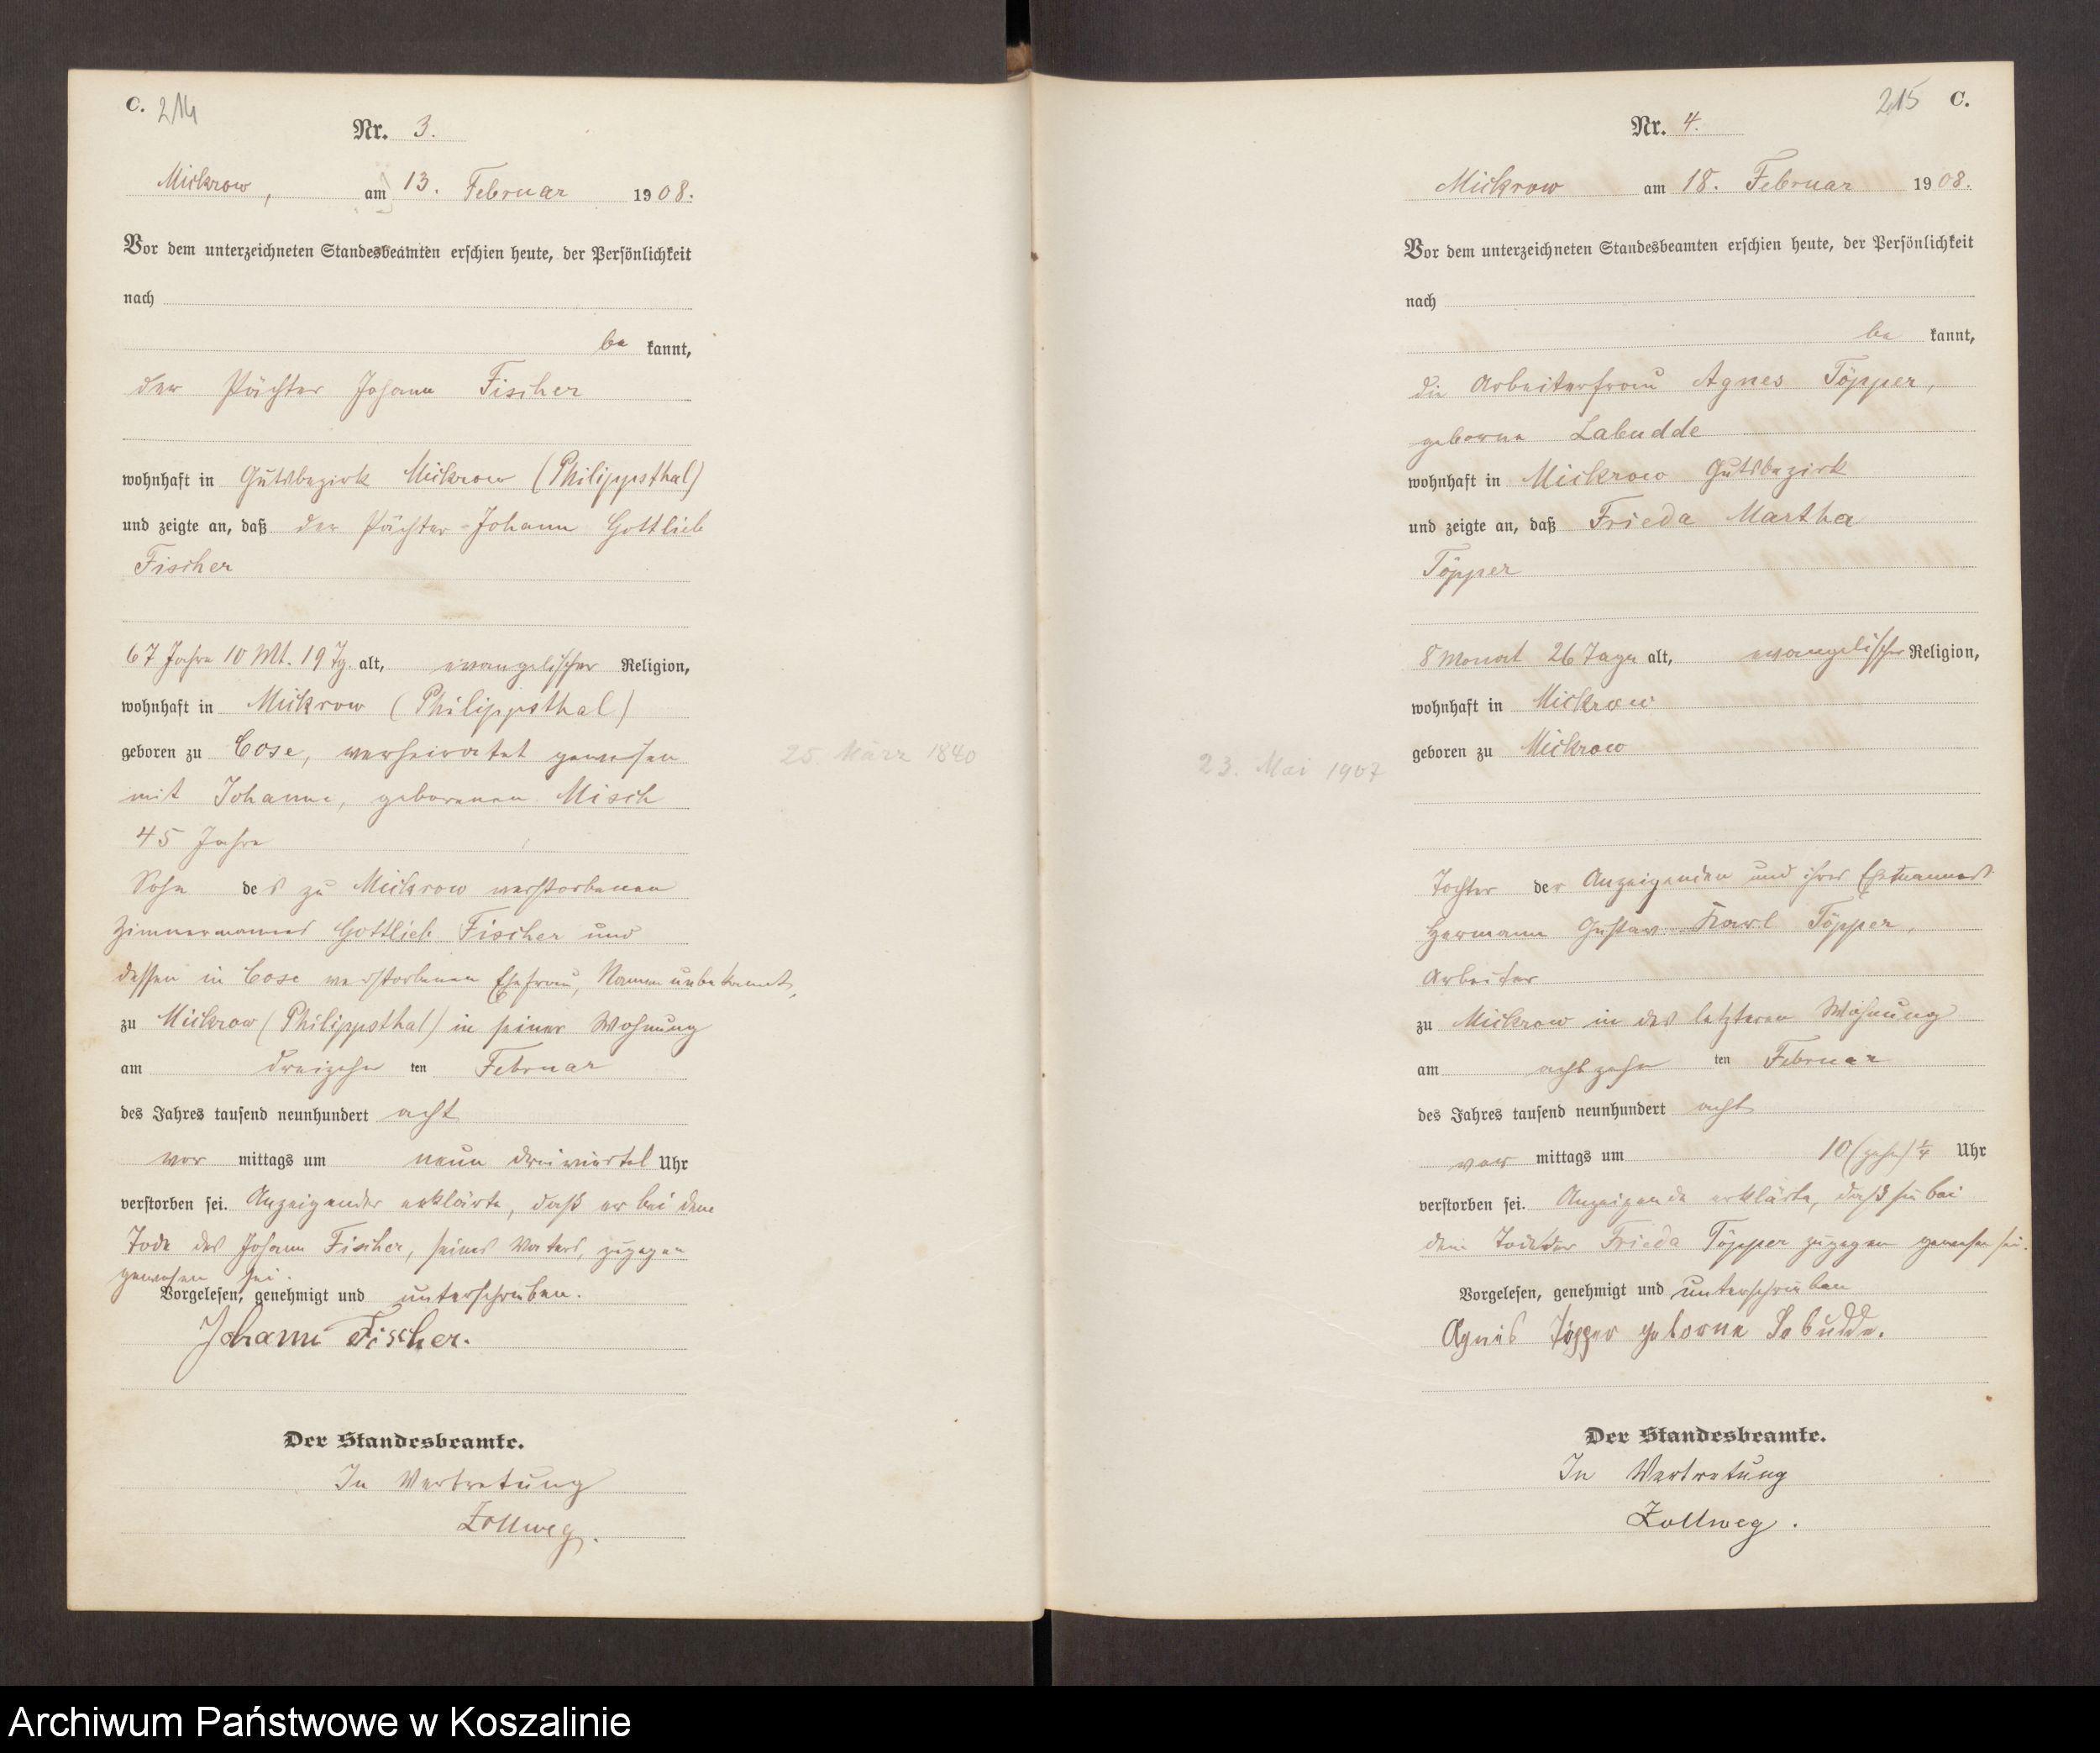 C. 214
Nr. 3.
Mickrow, am 13. Februar 1908.
Vor dem unterzeichneten Standesbeamten erschien heute, der Persönlichkeit
nach
be kannt,
der Pächter Johann Fischer
wohnhaft in Gutsbezirk Mickrow (Philippsthal)
und zeigte an, daß der Pächter Johann Gottlieb
Fischer
67 Jahre 10 Mt. 19 Tg. alt, evangelischer Religion,
wohnhaft in Mickrow (Philippsthal)
geboren zu Cose, verheiratet gewesen
25. März 1840
mit Johanne, geborenen Misch
45 Jahre
Sohn des zu Mickrow verstorbenen
Zimmermanns Gottlieb Fischer und
dessen in Cose verstorbenen Ehefrau, Namen unbekannt,
zu Mickrow (Philippsthal) in seiner Wohnung
am dreizehn ten Februar
des Jahres tausend neunhundert acht
vor mittags um neun dreiviertel Uhr
verstorben sei. Anzeigender erklärte, daß er bei dem
Tode des Johann Fischer, seines Vaters, zugegen
gewesen sei.
Vorgelesen, genehmigt und unterschrieben.
Johann Fischer.
Der Standesbeamte.
In Vertretung
Zollweg.
215 C.
Nr. 4.
Mickrow am 18. Februar 1908.
Vor dem unterzeichneten Standesbeamten erschien heute, der Persönlichkeit
nach
be kannt,
die Arbeiterfrau Agnes Töpper,
geborne Labudde
wohnhaft in Mickrow Gutsbezirk
und zeigte an, daß Frieda Martha
Töpper
8 Monat 26 Tage alt, evangelischer Religion,
wohnhaft in Mickrow
geboren zu Mickrow
23. Mai 1907
Tochter der Anzeigenden und ihres Ehemannes
Hermann Gustav Karl Töpper,
Arbeiter
zu Mickrow in des letzteren Wohnung
am achtzehn ten Februar
des Jahres tausend neunhundert acht
vor mittags um 10 (zehn) ¼ Uhr
verstorben sei. Anzeigende erklärte, daß sie bei
dem Tode der Frieda Töpper zugegen gewesen sei.
Vorgelesen, genehmigt und unterschrieben
Agnes Töpper geborne Labudde.
Der Standesbeamte.
In Vertretung
Zollweg.
Archiwum Państwowe w Koszalinie